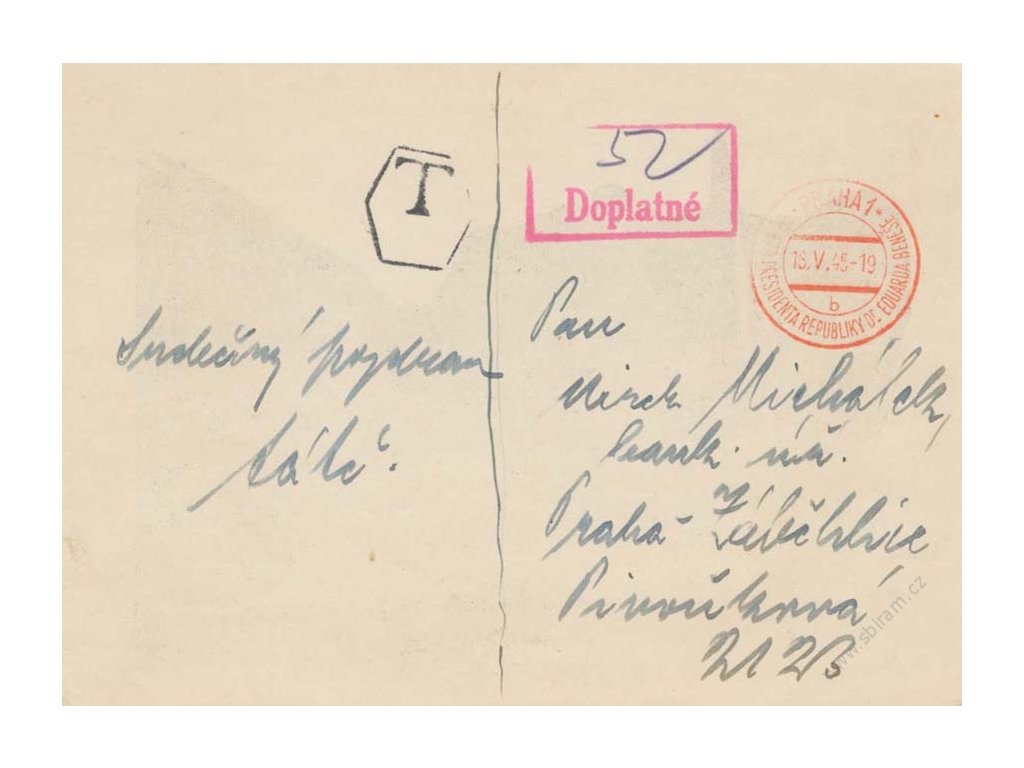 T
52
Doplatné
PRAHA 1
16.V.45-19
b
PRESIDENTA REPUBLIKY DR EDUARDA BENEŠE
Srdečný pozdrav
táta.
Pan
Mirek Michálek,
bank. úř.
Praha - Záběhlice
Pivoňková
www.sbiram.cz